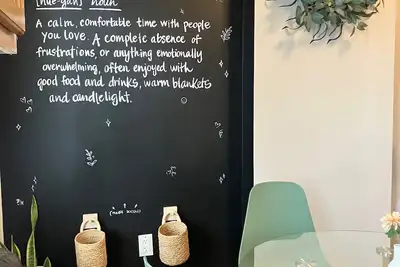 [hue-gah] noun
A calm, comfortable time with people
you love. A complete absence of
frustrations, or anything emotionally
overwhelming, often enjoyed with
good food and drinks, warm blankets
and candlelight.